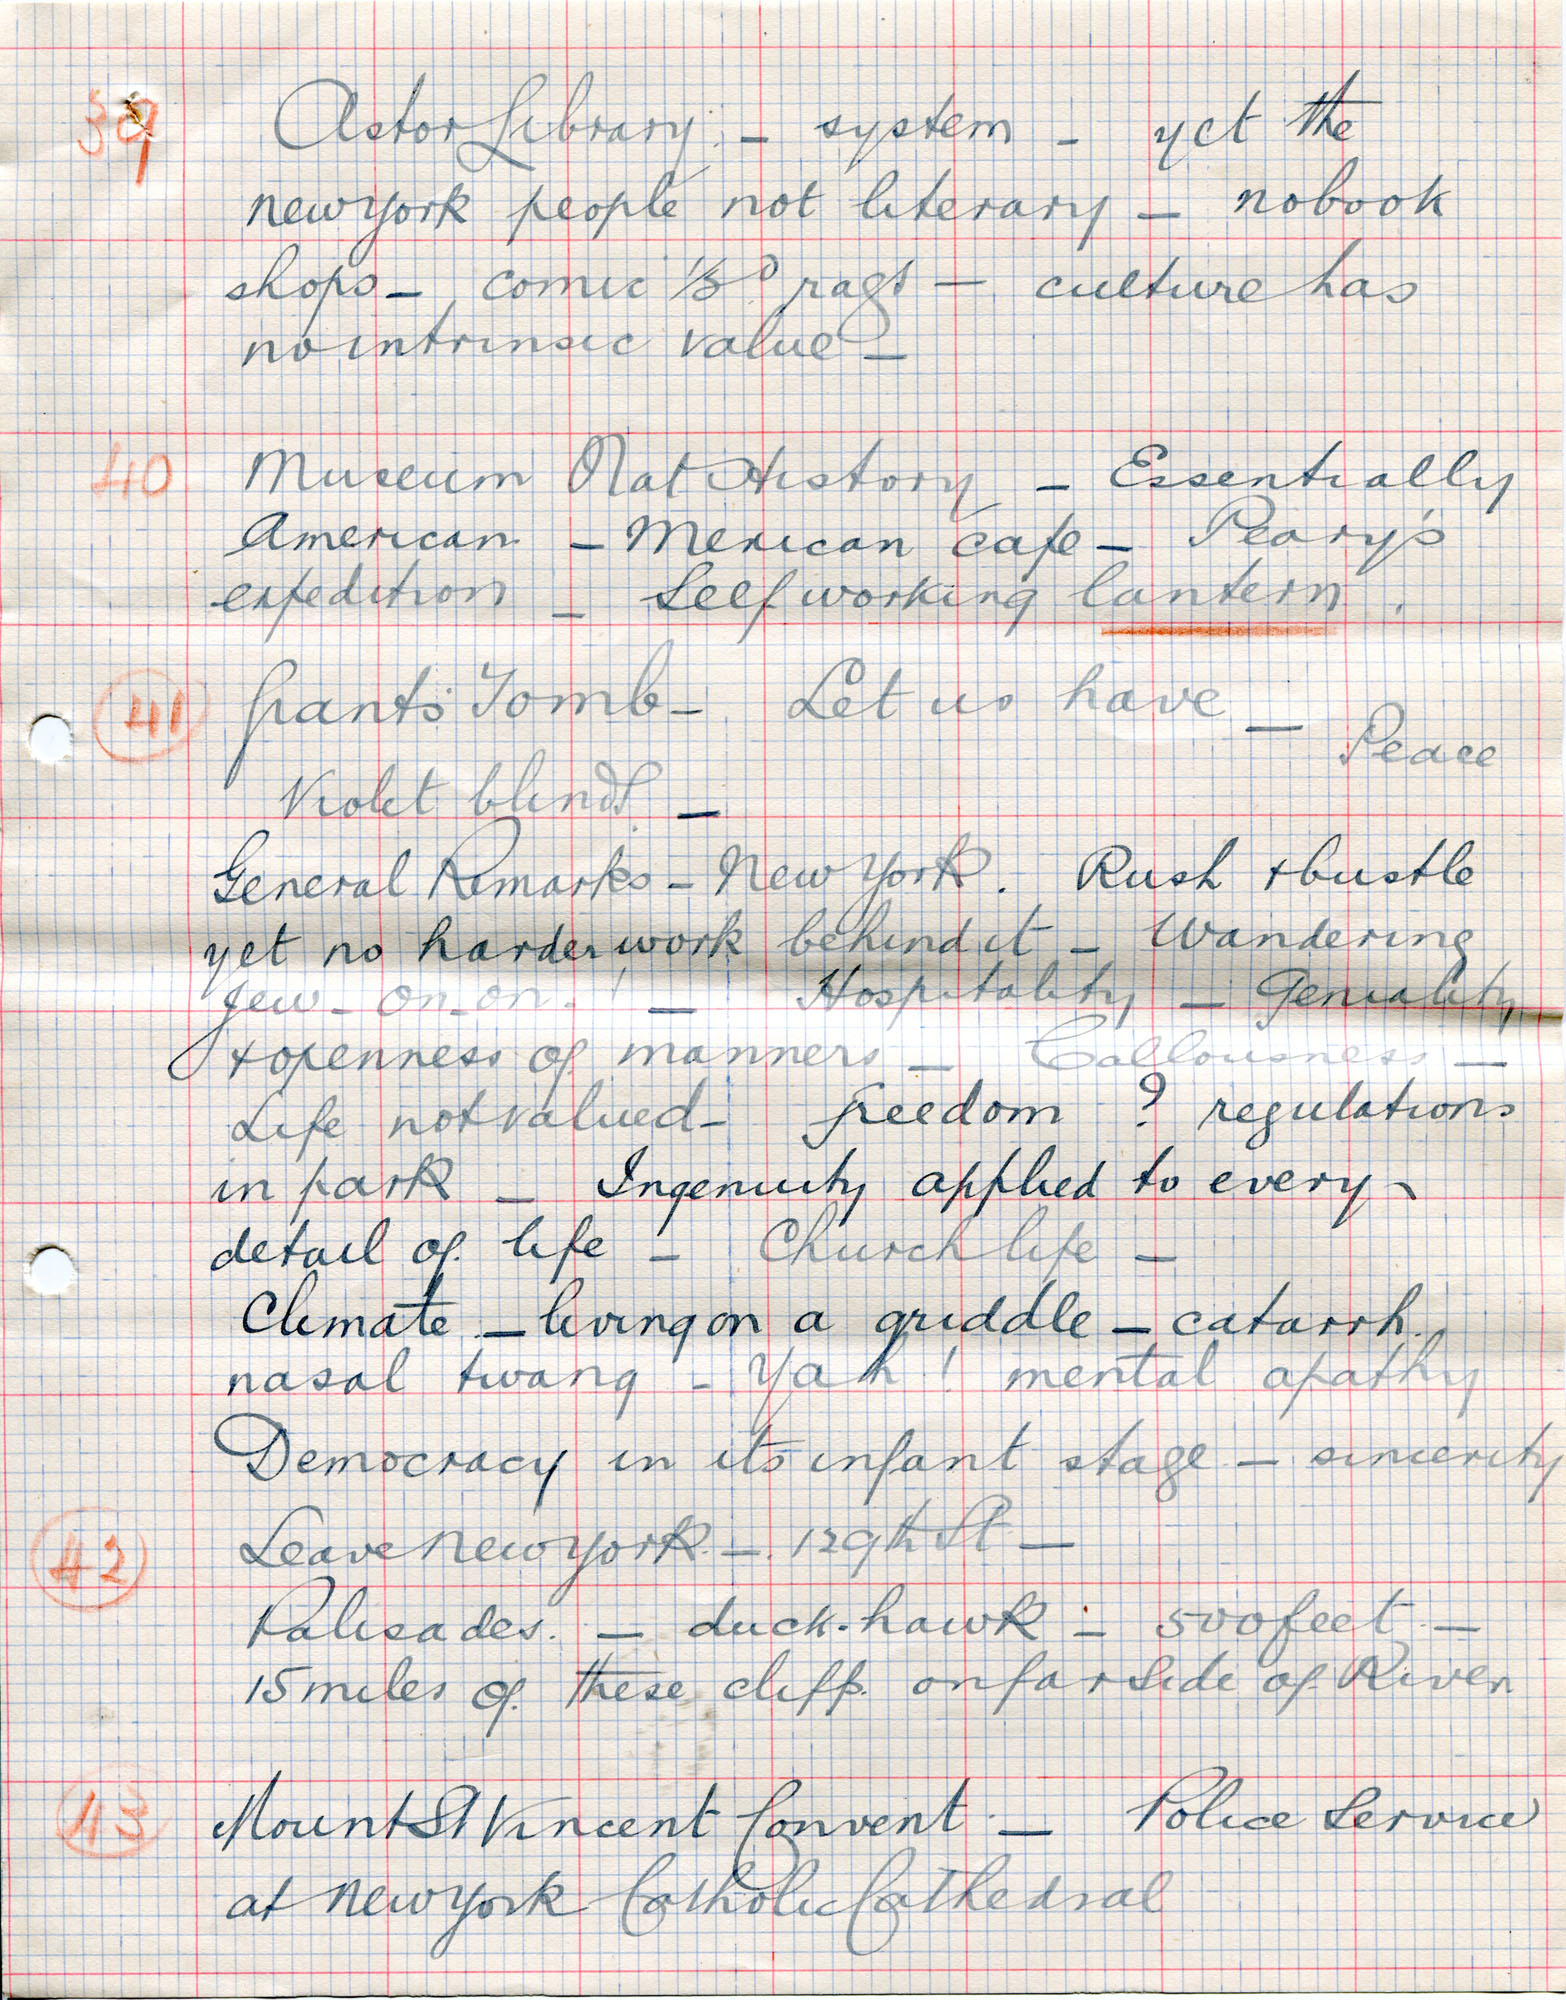 39 Astor Library - system - yet the
new york people not literary - no book
shops - comic ½d rags - culture has
no intrinsic value -
40 Museum Nat History - Essentially
American - Mexican cafe - Peary's
expedition - Self working lantern.
41 Grants Tomb - Let us have - Peace
Violet blinds -
General Remarks - New York. Rush + bustle
yet no harder work behind it - Wandering
Jew - on - on! - Hospitality - Geniality
+ openness of manners - Callousness -
Life not valued - freedom ? regulations
in park - Ingenuity applied to every
detail of life - Church life -
Climate - living on a griddle - catarrh.
nasal twang - Yah! mental apathy
Democracy in its infant stage - sincerity
42 Leave New York - 129th St -
Palisades. - duck-hawk - 500 feet -
15 miles of these cliffs on far side of River
43 Mount St Vincent Convent - Police Service
at New York Catholic Cathedral